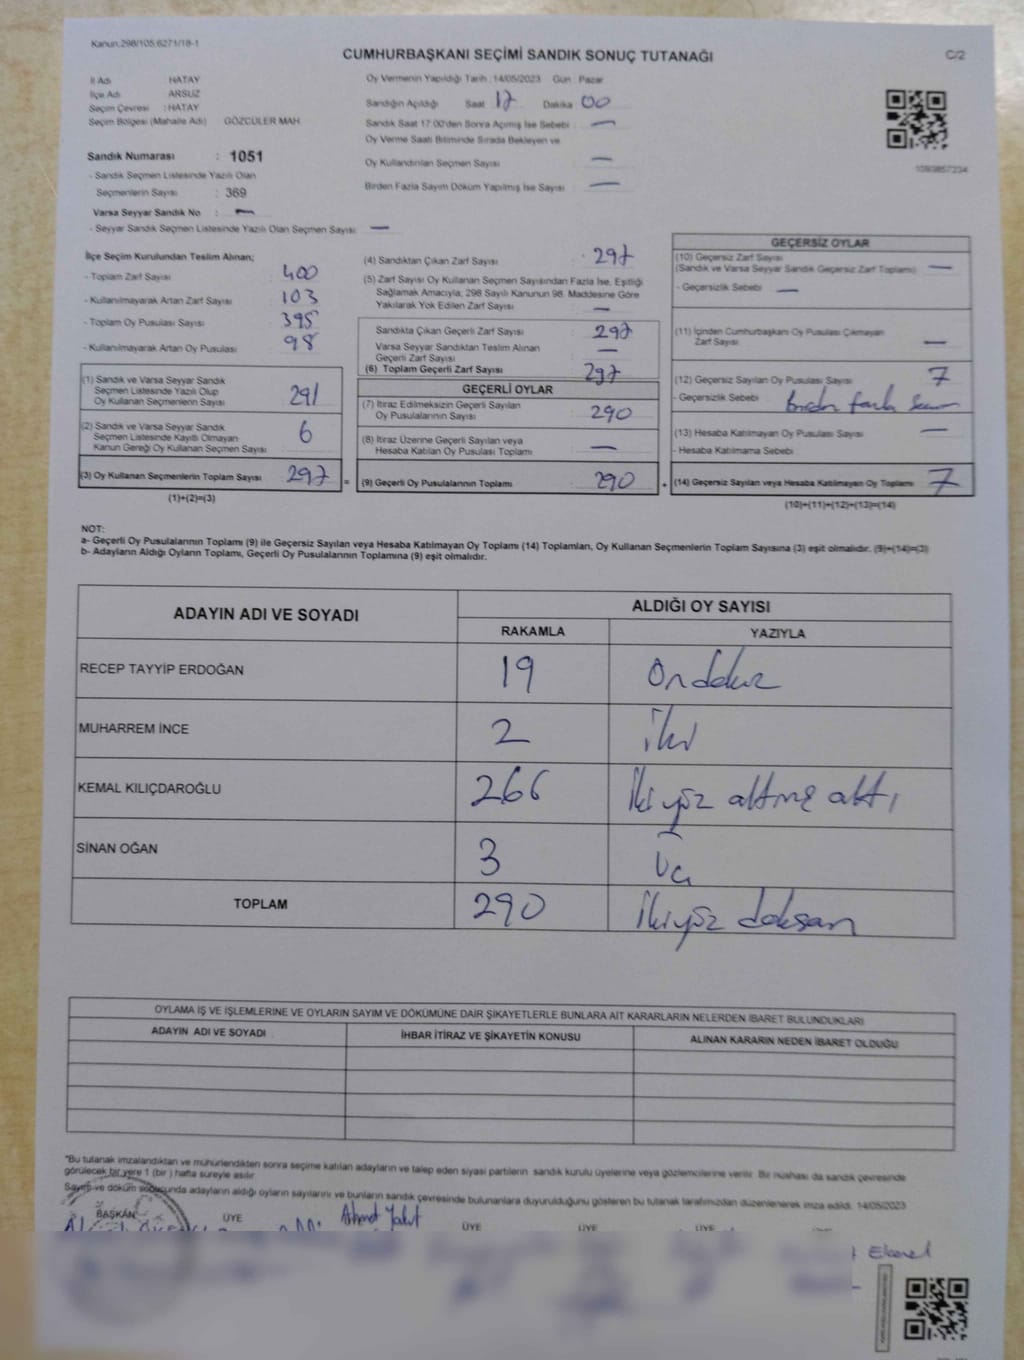 Kanun:298/105;6271/18-1
CUMHURBAŞKANI SEÇİMİ SANDIK SONUÇ TUTANAĞI
C/2
İl Adı HATAY
İlçe Adı ARSUZ
Seçim Çevresi : HATAY
Seçim Bölgesi (Mahalle Adı) GÖZCÜLER MAH.
Sandık Numarası : 1051
- Sandık Seçmen Listesinde Yazılı Olan
Seçmenlerin Sayısı : 369
Varsa Seyyar Sandık No : —
- Seyyar Sandık Seçmen Listesinde Yazılı Olan Seçmen Sayısı: —
Oy Vermenin Yapıldığı Tarih :14/05/2023 Gün : Pazar
Sandığın Açıldığı Saat 17 Dakika 00
Sandık Saat 17:00'den Sonra Açılmış İse Sebebi : —
Oy Verme Saati Bitiminde Sırada Bekleyen ve
Oy Kullandırılan Seçmen Sayısı : —
Birden Fazla Sayım Döküm Yapılmış İse Sayısı : —
1093857234
İlçe Seçim Kurulundan Teslim Alınan;
- Toplam Zarf Sayısı : 400
- Kullanılmayarak Artan Zarf Sayısı : 103
- Toplam Oy Pusulası Sayısı : 395
- Kullanılmayarak Artan Oy Pusulası : 98
(1) Sandık ve Varsa Seyyar Sandık
Seçmen Listesinde Yazılı Olup
Oy Kullanan Seçmenlerin Sayısı 291
(2) Sandık ve Varsa Seyyar Sandık
Seçmen Listesinde Kayıtlı Olmayan
Kanun Gereği Oy Kullanan Seçmen Sayısı : 6
(3) Oy Kullanan Seçmenlerin Toplam Sayısı 297 =
(1)+(2)=(3)
(4) Sandıktan Çıkan Zarf Sayısı : 297
(5) Zarf Sayısı Oy Kullanan Seçmen Sayısından Fazla İse, Eşitliği
Sağlamak Amacıyla, 298 Sayılı Kanunun 98. Maddesine Göre
Yakılarak Yok Edilen Zarf Sayısı : —
Sandıkta Çıkan Geçerli Zarf Sayısı : 297
Varsa Seyyar Sandıktan Teslim Alınan
Geçerli Zarf Sayısı : —
(6) Toplam Geçerli Zarf Sayısı : 297
GEÇERLİ OYLAR
(7) İtiraz Edilmeksizin Geçerli Sayılan
Oy Pusulalarının Sayısı : 290
(8) İtiraz Üzerine Geçerli Sayılan veya
Hesaba Katılan Oy Pusulası Toplamı : —
(9) Geçerli Oy Pusulalarının Toplamı : 290 +
GEÇERSİZ OYLAR
(10) Geçersiz Zarf Sayısı
(Sandık ve Varsa Seyyar Sandık Geçersiz Zarf Toplamı) : —
- Geçersizlik Sebebi : —
(11) İçinden Cumhurbaşkanı Oy Pusulası Çıkmayan
Zarf Sayısı : —
(12) Geçersiz Sayılan Oy Pusulası Sayısı : 7
- Geçersizlik Sebebi :
(13) Hesaba Katılmayan Oy Pusulası Sayısı : —
- Hesaba Katılmama Sebebi
(14) Geçersiz Sayılan veya Hesaba Katılmayan Oy Toplamı : 7
(10)+(11)+(12)+(13)=(14)
NOT:
a- Geçerli Oy Pusulalarının Toplamı (9) ile Geçersiz Sayılan veya Hesaba Katılmayan Oy Toplamı (14) Toplamları, Oy Kullanan Seçmenlerin Toplam Sayısına (3) eşit olmalıdır. (9)+(14)=(3)
b- Adayların Aldığı Oyların Toplamı, Geçerli Oy Pusulalarının Toplamına (9) eşit olmalıdır.
ADAYIN ADI VE SOYADI
ALDIĞI OY SAYISI
RAKAMLA YAZIYLA
RECEP TAYYİP ERDOĞAN 19 Ondokuz
MUHARREM İNCE 2 iki
KEMAL KILIÇDAROĞLU 266 İkiyüz altmış altı
SİNAN OĞAN 3 Üç
TOPLAM 290 İkiyüz doksan
OYLAMA İŞ VE İŞLEMLERİNE VE OYLARIN SAYIM VE DÖKÜMÜNE DAİR ŞİKAYETLERLE BUNLARA AİT KARARLARIN NELERDEN İBARET BULUNDUKLARI
ADAYIN ADI VE SOYADI İHBAR İTİRAZ VE ŞİKAYETİN KONUSU ALINAN KARARIN NEDEN İBARET OLDUĞU
*Bu tutanak imzalandıktan ve mühürlendikten sonra seçime katılan adayların ve talep eden siyasi partilerin sandık kurulu üyelerine veya gözlemcilerine verilir. Bir nüshası da sandık çevresinde
görülecek bir yere 1 (bir ) hafta süreyle asılır.
Sayım ve döküm sonucunda adayların aldığı oyların sayılarını ve bunların sandık çevresinde bulunanlara duyurulduğunu gösteren bu tutanak tarafımızdan düzenlenerek imza edildi. 14/05/2023
BAŞKAN ÜYE Ahmet ÜYE ÜYE ÜYE